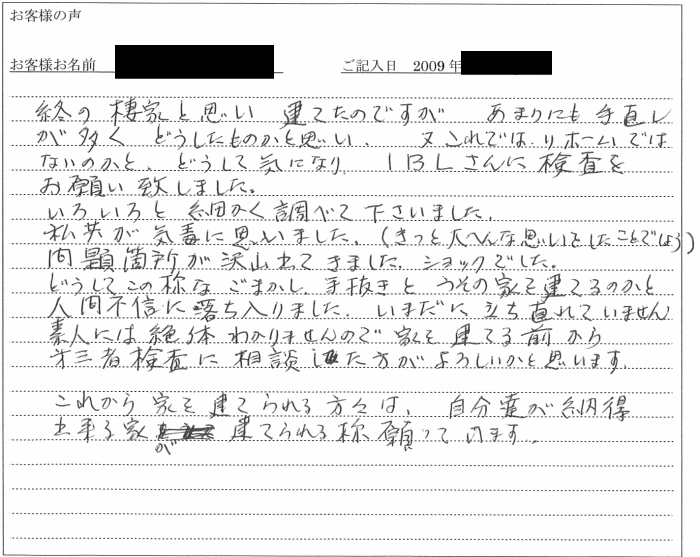 お客様の声
お客様お名前 ご記入日 2009年
終の棲家と思い 建てたのですが あまりにも手直し
が多く どうしたものかと思い、又これでは、リホームでは
ないのかと、どうして気になり、IBLさんに検査を
お願い致しました。
いろいろと細かく調べて下さいました。
私共が気毒に思いました。(きっと大へんな思いをしたことでしょう)
問題箇所が沢山出てきました。ショックでした。
どうしてこの様な ごまかし、手抜きと うその家を建てるのかと
人間不信に落ち入りました。いまだに立ち直れていません
素人には絶体わかりませんので 家を建てる前から
第三者検査に相談した方がよろしいかと思います。
これから家を建てられる方々は、自分達が納得
出来る家が建てられる様願っています。